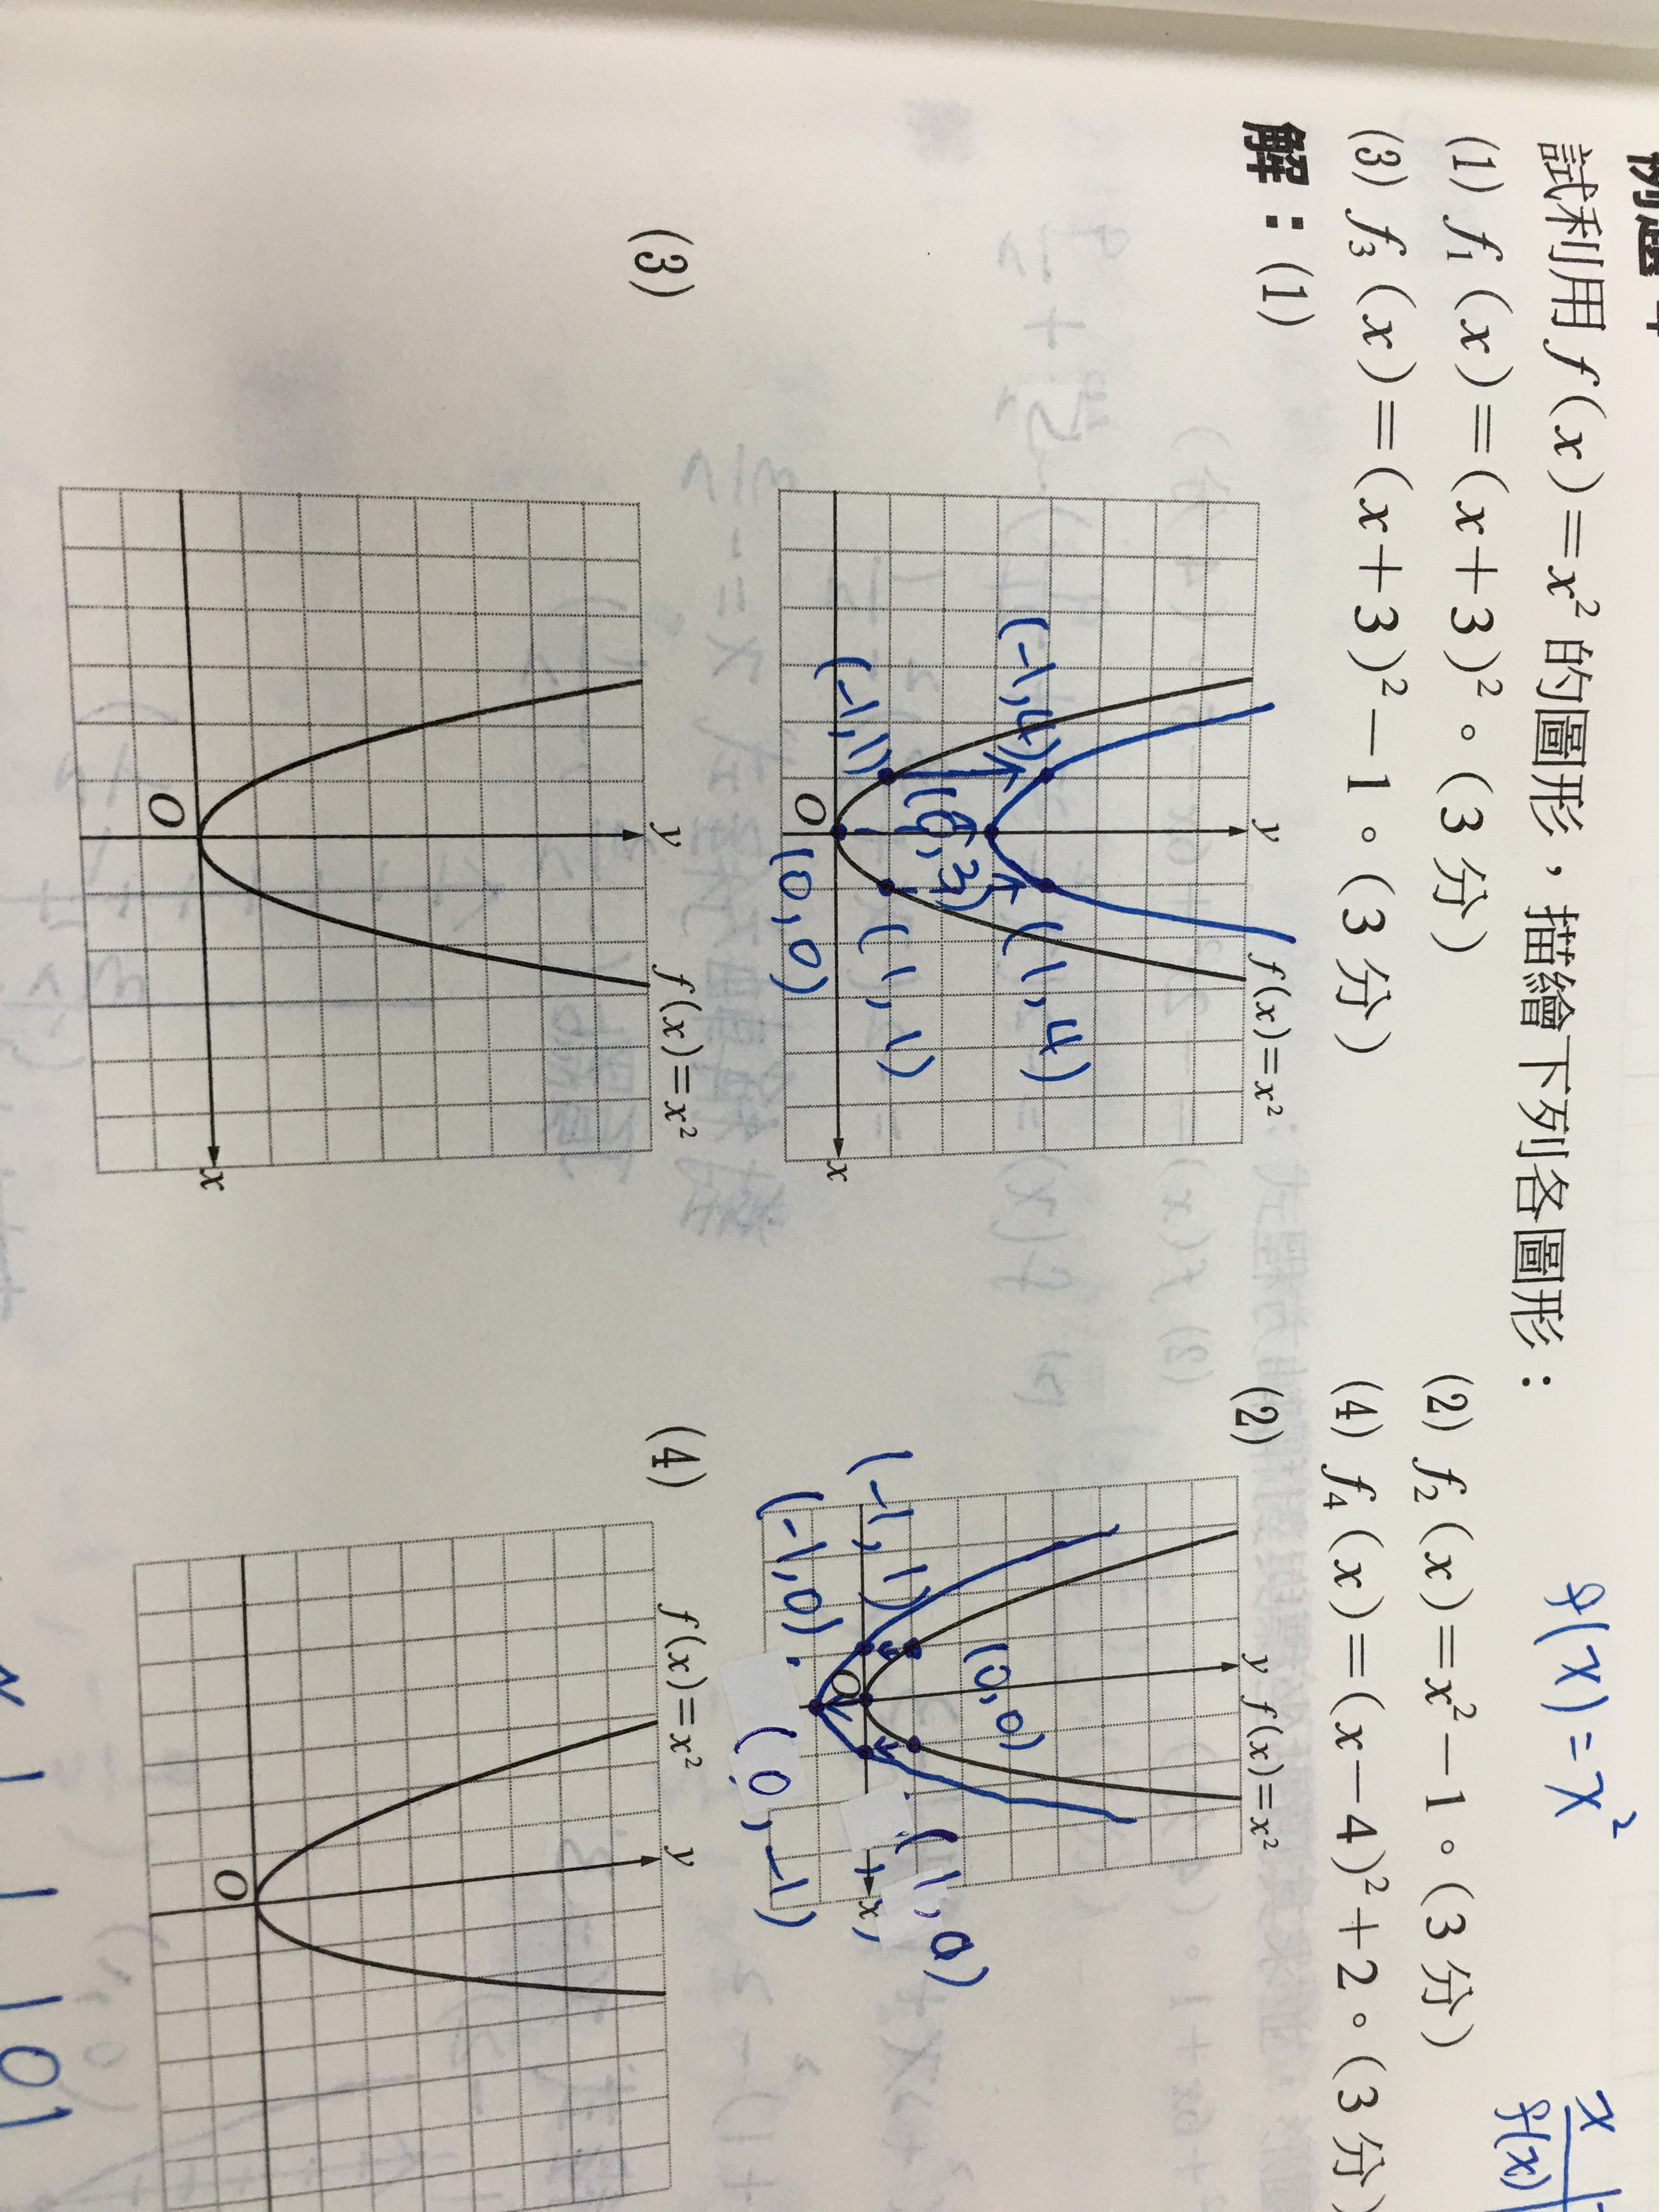 試利用 f(x)=x²的圖形，描繪下列各圖形：
f(x)=x²
x
f(x)
(1) f₁(x)=(x+3)²。(3分)
(2) f₂(x)=x²-1。(3分)
(3) f₃(x)=(x+3)²-1。(3分)
(4) f₄(x)=(x-4)²+2。(3分)
解：(1)
y
f(x)=x²
(-1,4)
(1,4)
(0,3)
(-1,1)
(1,1)
O
(0,0)
x
(2)
y
f(x)=x²
(0,0)
(-1,1)
(1,0)
O
x
(-1,0)
(0,-1)
(3)
y
f(x)=x²
O
x
(4)
f(x)=x²
y
O